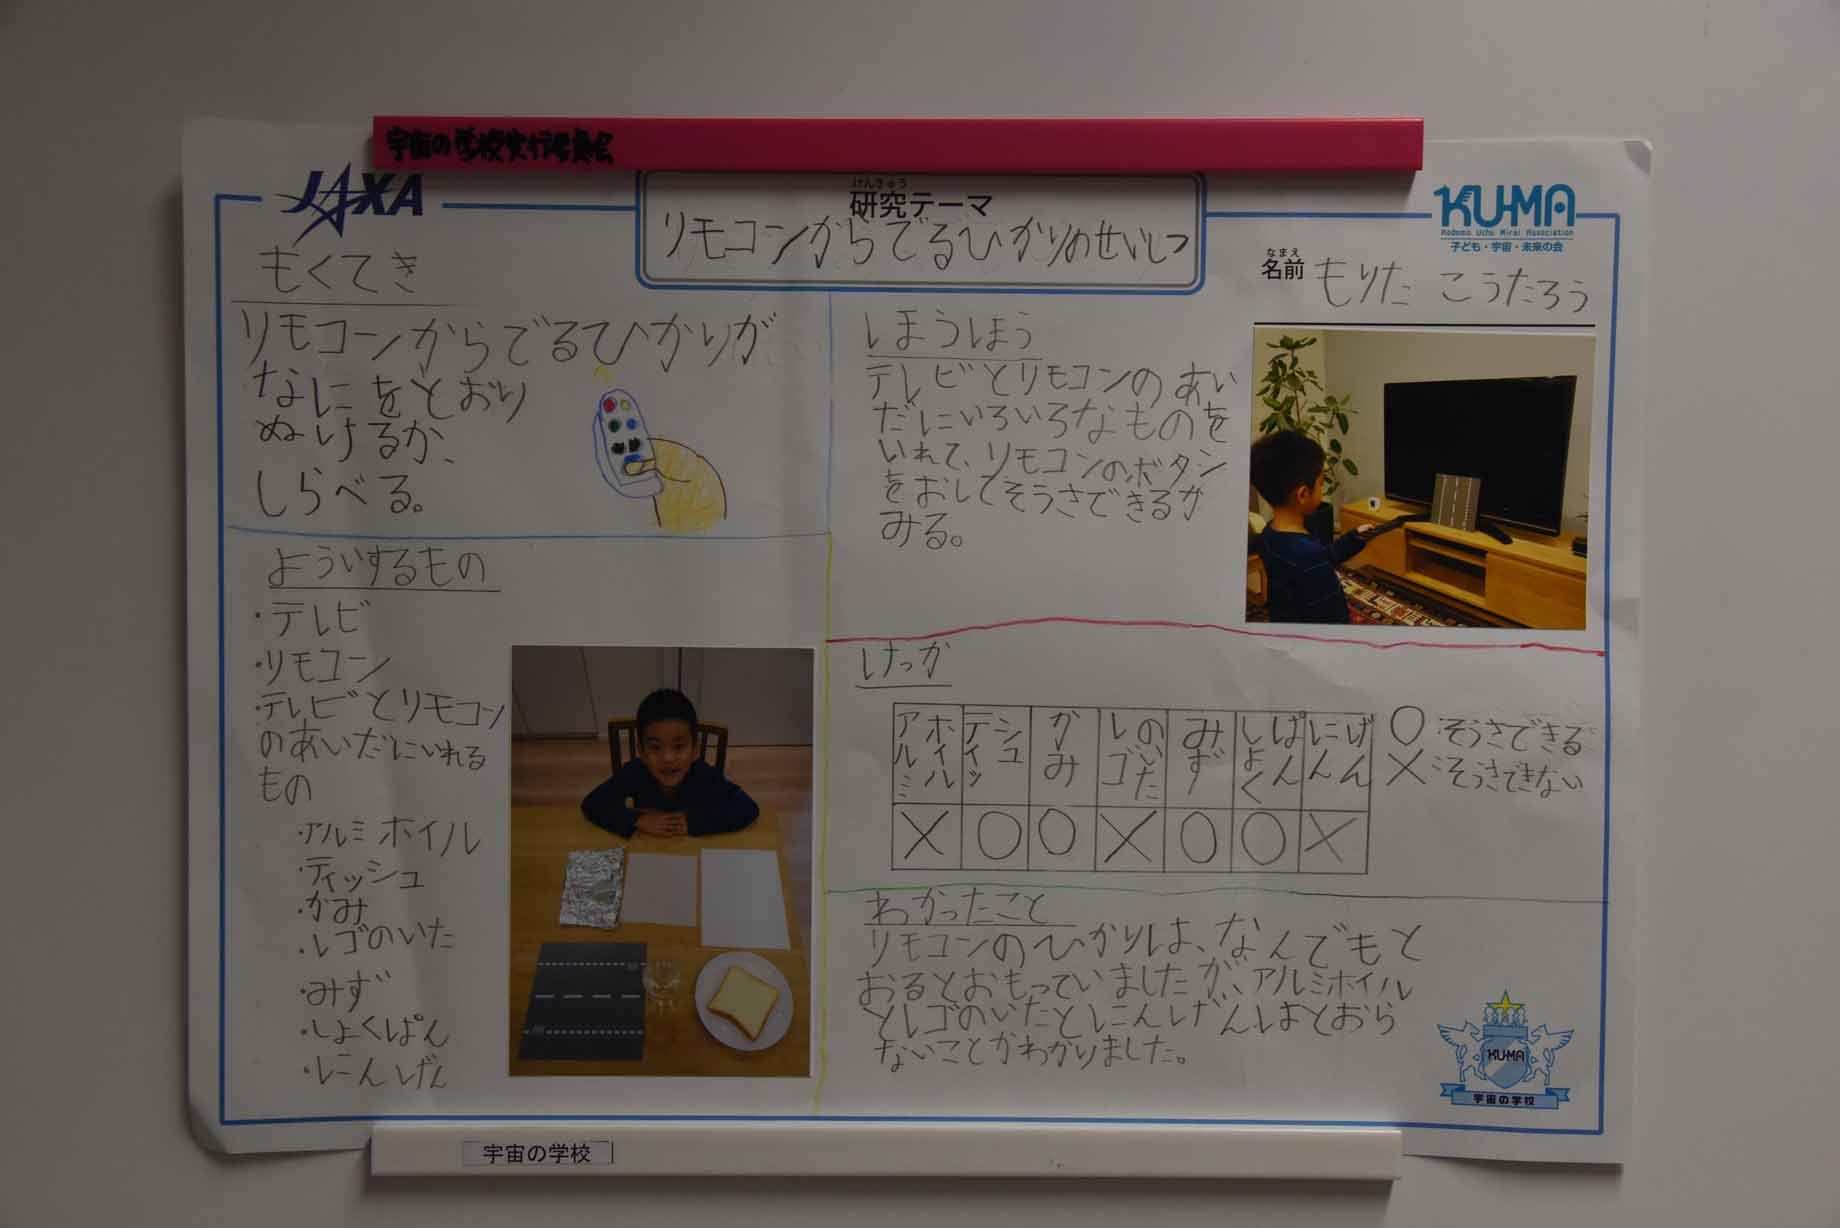 宇宙の学校実行委員会
JAXA
けんきゅう
研究テーマ
リモコンからでるひかりのせいしつ
KU-MA
Kodomo Uchu Mirai Association
子ども・宇宙・未来の会
なまえ
名前 もりた こうたろう
もくてき
リモコンからでるひかりが
なにをとおり
ぬけるか、
しらべる。
よういするもの
・テレビ
・リモコン
・テレビとリモコン
のあいだにいれる
もの
・アルミホイル
・ティッシュ
・かみ
・レゴのいた
・みず
・しょくぱん
・にんげん
ほうほう
テレビとリモコンのあい
だにいろいろなものを
いれて、リモコンのボタン
をおしてそうさできるか
みる。
けっか
アルミホイル ティッシュ かみ レゴのいた みず しょくぱん にんげん
× ○ ○ × ○ ○ ×
○:そうさできる
×:そうさできない
わかったこと
リモコンのひかりは、なんでもと
おるとおもっていましたが、アルミホイル
とレゴのいたとにんげんはとおら
ないことがわかりました。
KU-MA
宇宙の学校
宇宙の学校